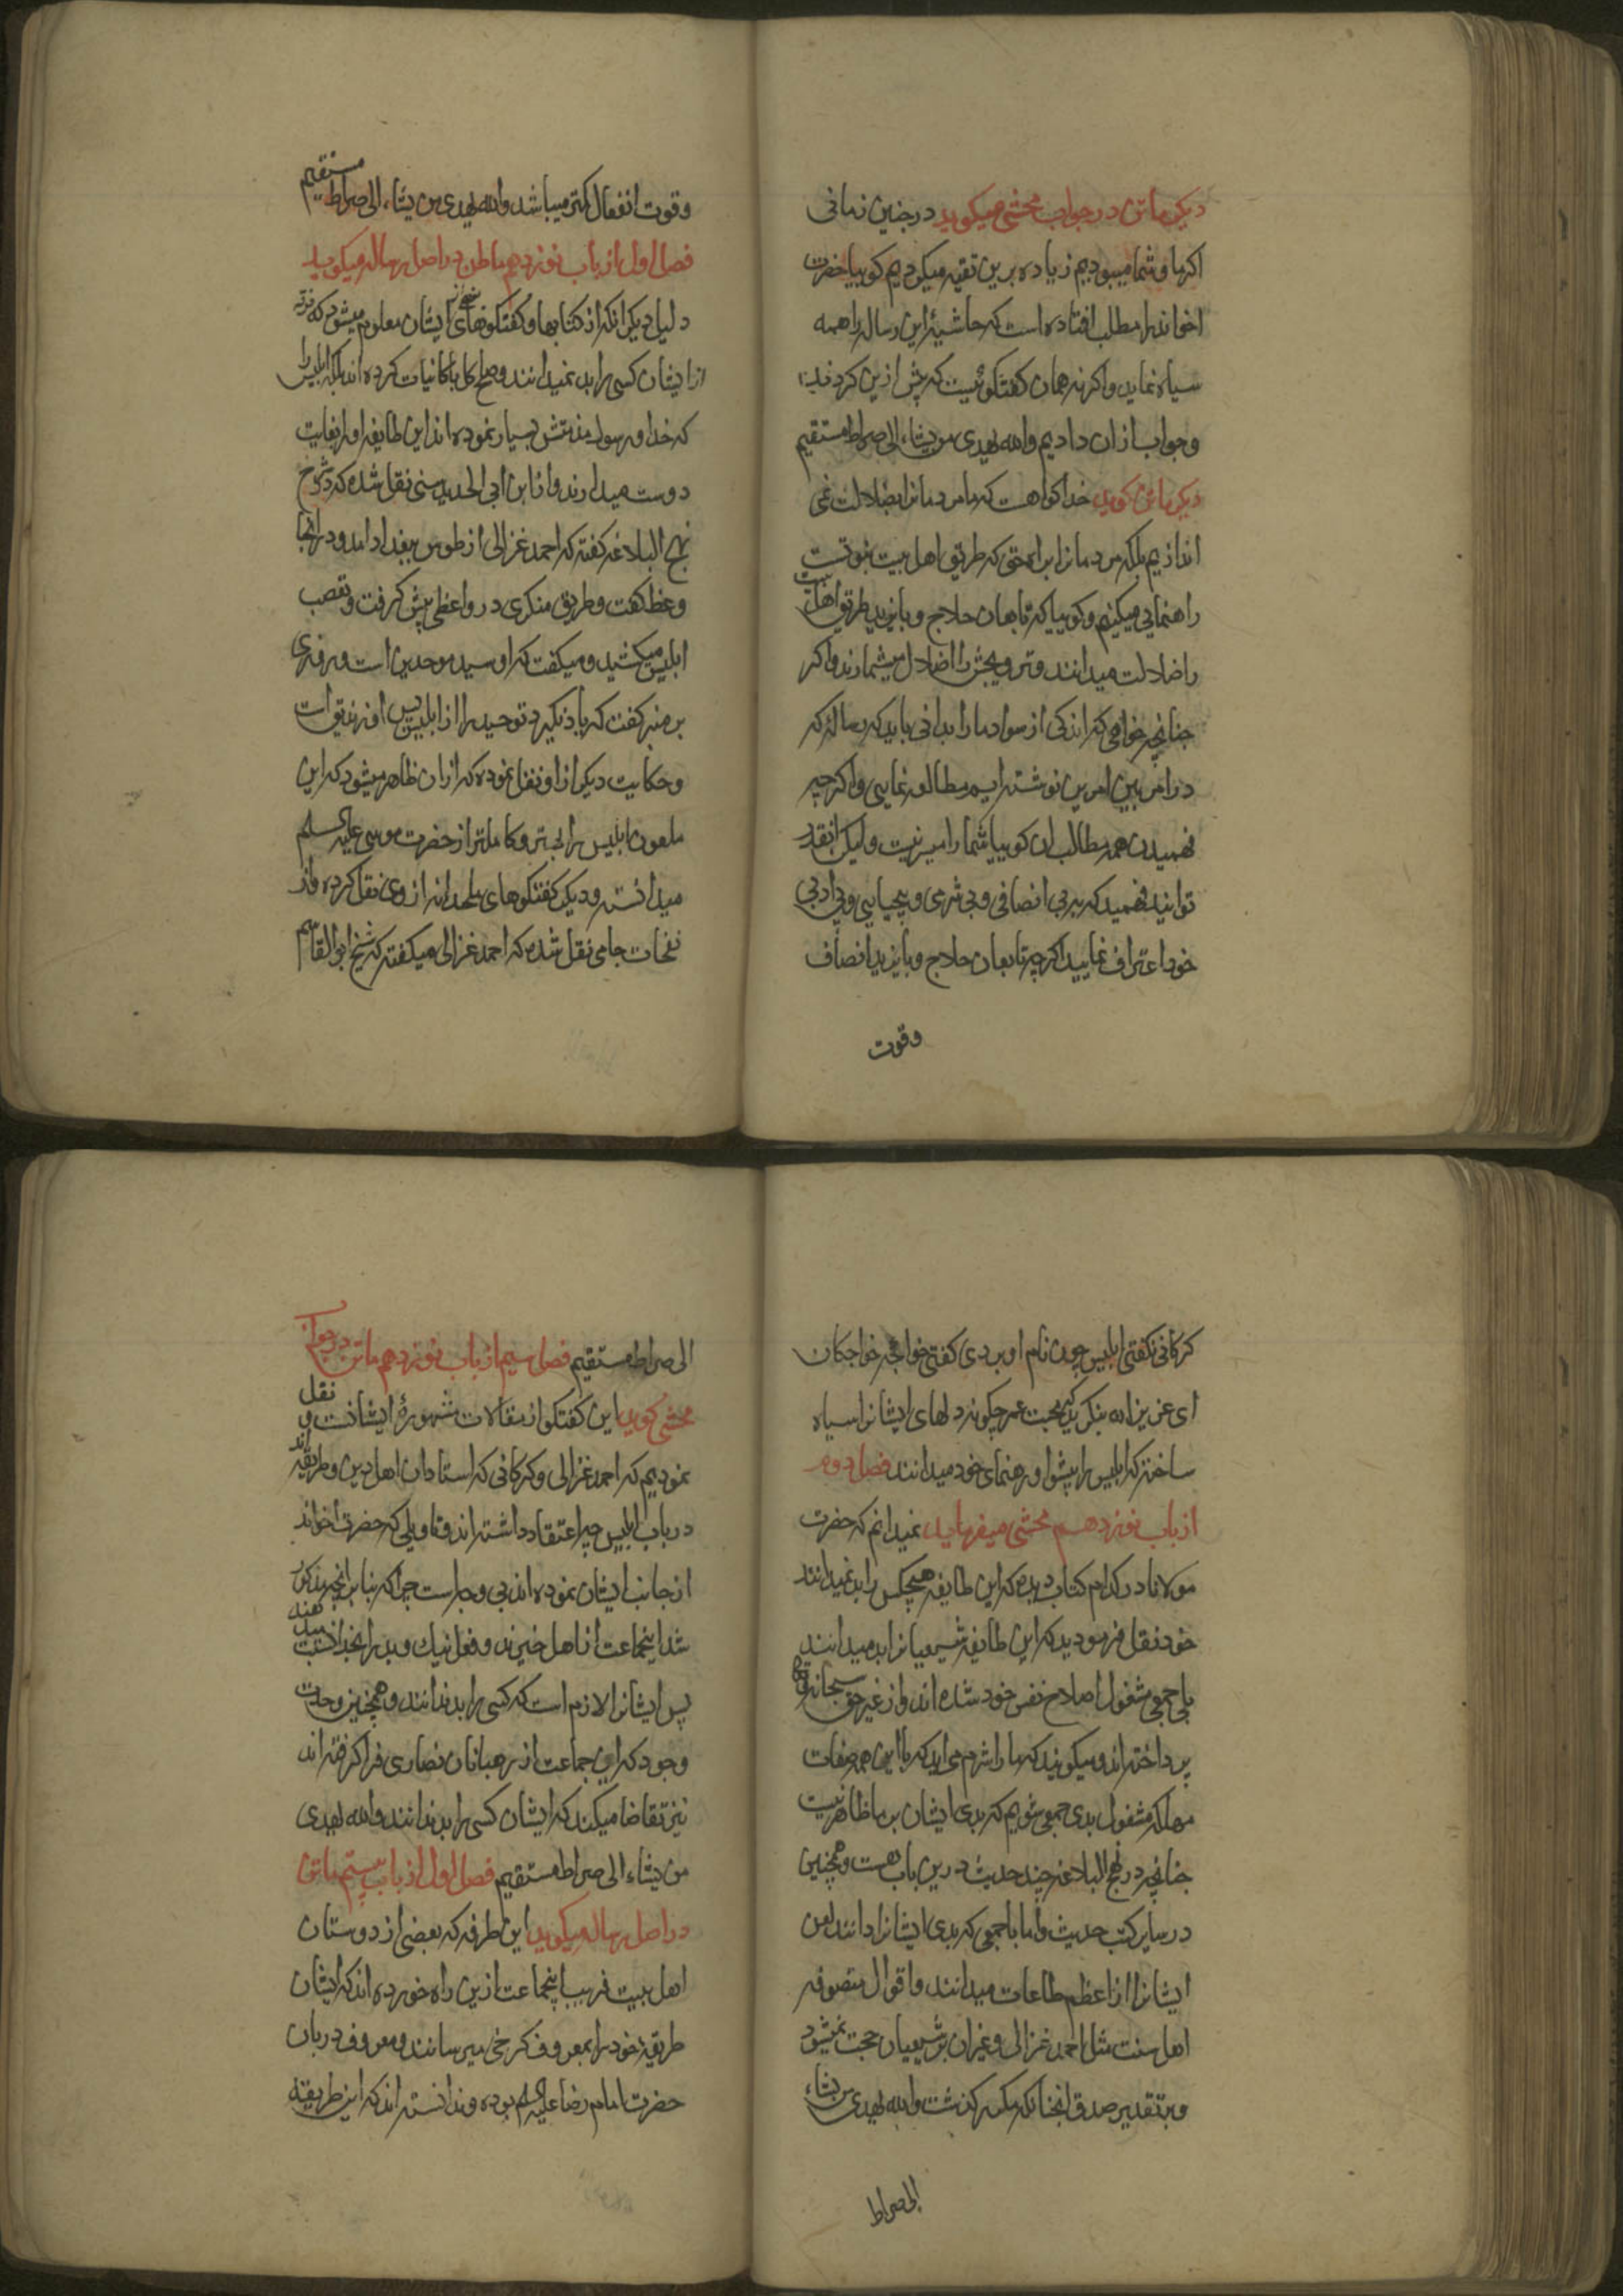 دیکر ماتن در جواب محشی میکوید در چنین زمانی
اکر ما و شما میبودیم زیاده برین تقیه میکردیم کوییا حضرت
اخواند را مطلب افتاده است که حاشیهٔ این رساله را همه
سیاه نماید واکر نه همان کفتکوئیست که پیش ازین کردند
وجواب ازان دادیم والله یهدی من یشاء الی صراط مستقیم
دیکر ماتن کوید خدا کواهست که ما مردمانرا بضلالت نمی
اندازیم بلکه مردمانرا براه حق که طریق اهل بیت نبوتست
راهنمایی میکنیم وکوییا که تابعان حلاج وبایزید طریق اهل بیت
را ضلالت میدانند وترویجش را اضلال میشمارند واکر
چنانچه خواهی که اندکی از سواد ما را بدانی باید که رسالهٔ که
در امر بین امرین نوشته ایم مطالعه نمایی واکرچه
فهمیدن همه مطالب ان کوییا شما را میسر نیست ولیکن انقدر
توانید فهمید که بر بی انصافی وبی شرمی وبیحیایی وبی ادبی
خود اعتراف نمایید اکرچه تابعان حلاج وبایزید انصاف
وقوت
وقوت انفعال کمتر میباشد والله یهدی من یشاء الی صراط مستقیم
فصل اول از باب نوزدهم ماتن در اصل رساله میکوید
دلیل دیکر انکه از کتابها وکفتکوهای شیوخ ایشان معلوم میشود که فرقه
از ایشان کسی را بد نمیدانند وصلح کل با کاینات کرده اند بلکه ابلیس را
که خدا ورسول مذمتش بسیار نموده اند این طایفه او را بغایت
دوست میدارند واز ابن ابی الحدید سنی نقل شده که در شرح
نهج البلاغه کفته که احمد غزالی از طوس ببغداد امد ودر انجا
وعظ کفت وطریق منکری در واعظی پیش کرفت وتعصب
ابلیس میکشید ومیکفت که او سید موحدین است وروزی
بر منبر کفت که یاد نکیرد توحید را از ابلیس پس او زندیق است
وحکایت دیکر از او نقل نموده که ازان ظاهر میشود که این
ملعون ابلیس را بهتر وکاملتر از حضرت موسی علیه السلم
میدانسته ودیکر کفتکوهای ملحدانه از وی نقل کرده واز
نفحات جامی نقل شده که احمد غزالی میکفته که شیخ ابوالقاسم
کرکانی نکفتی ابلیس چون نام او بردی کفتی خواجه خواجکان
ای عزیز الله بنکرید که محبت عمر چکونه دلهای ایشانرا سیاه
ساخته که ابلیس را پیشوا ورهنمای خود میدانند فصل دوم
از باب نوزدهم محشی میفرماید نمیدانم که حضرت
مولانا در کدام کتاب دیده که این طایفه هیچکس را بد نمیدانند
خود نقل فرمودید که این طایفه شیعیانرا بد میدانند
بلی جمعی مشغول اصلاح نفس خود شده اند واز غیر حق سبحانه وتعالی
پرداخته اند ومیکویند که ما را شرم می اید که با این همه صفات
مهلکه مشغول بدی جمعی شویم که بدی ایشان بر ما ظاهر نیست
چنانچه در نهج البلاغه چند حدیث درین باب هست وهمچنین
در سایر کتب حدیث واما با جمعی که بدی ایشانرا دانند لعن
ایشانرا از اعظم طاعات میدانند واقوال متصوفه
اهل سنت مثل احمد غزالی وغیر ان بر شیعیان حجت نمیشود
وبر تقدیر صدق انچنانکه مکرر کذشت والله یهدی من یشاء
الی صراط
الی صراط مستقیم فصل سیم از باب نوزدهم ماتن در جواب
محشی کوید این کفتکو از مقالات مشهورهٔ ایشانست ونقل
نمودیم که احمد غزالی وکرکانی که استادان اهل دین وطریقه اند
در باب ابلیس چه اعتقاد داشته اند وتاویلی که حضرت اخواند
از جانب ایشان نموده اند بی وجه است چرا که بنا بر انچه مذکور
شد اینجماعت از اهل خیرند وفعل نیک وبد را بخدا نسبت میدهند
پس ایشانرا لازم است که کسی را بد ندانند وهمچنین وحدت
وجود که این جماعت از رهبانان نصاری فرا کرفته اند
نیز تقاضا میکند که ایشان کسی را بد ندانند والله یهدی
من یشاء الی صراط مستقیم فصل اول از باب بیستم ماتن
در اصل رساله میکوید این طرفه که بعضی از دوستان
اهل بیت فریب اینجماعت ازین راه خورده اند که ایشان
طریقهٔ خود را بمعروف کرخی میرسانند ومعروف دربان
حضرت امام رضا علیه السلم بوده وندانسته اند که این طریقه